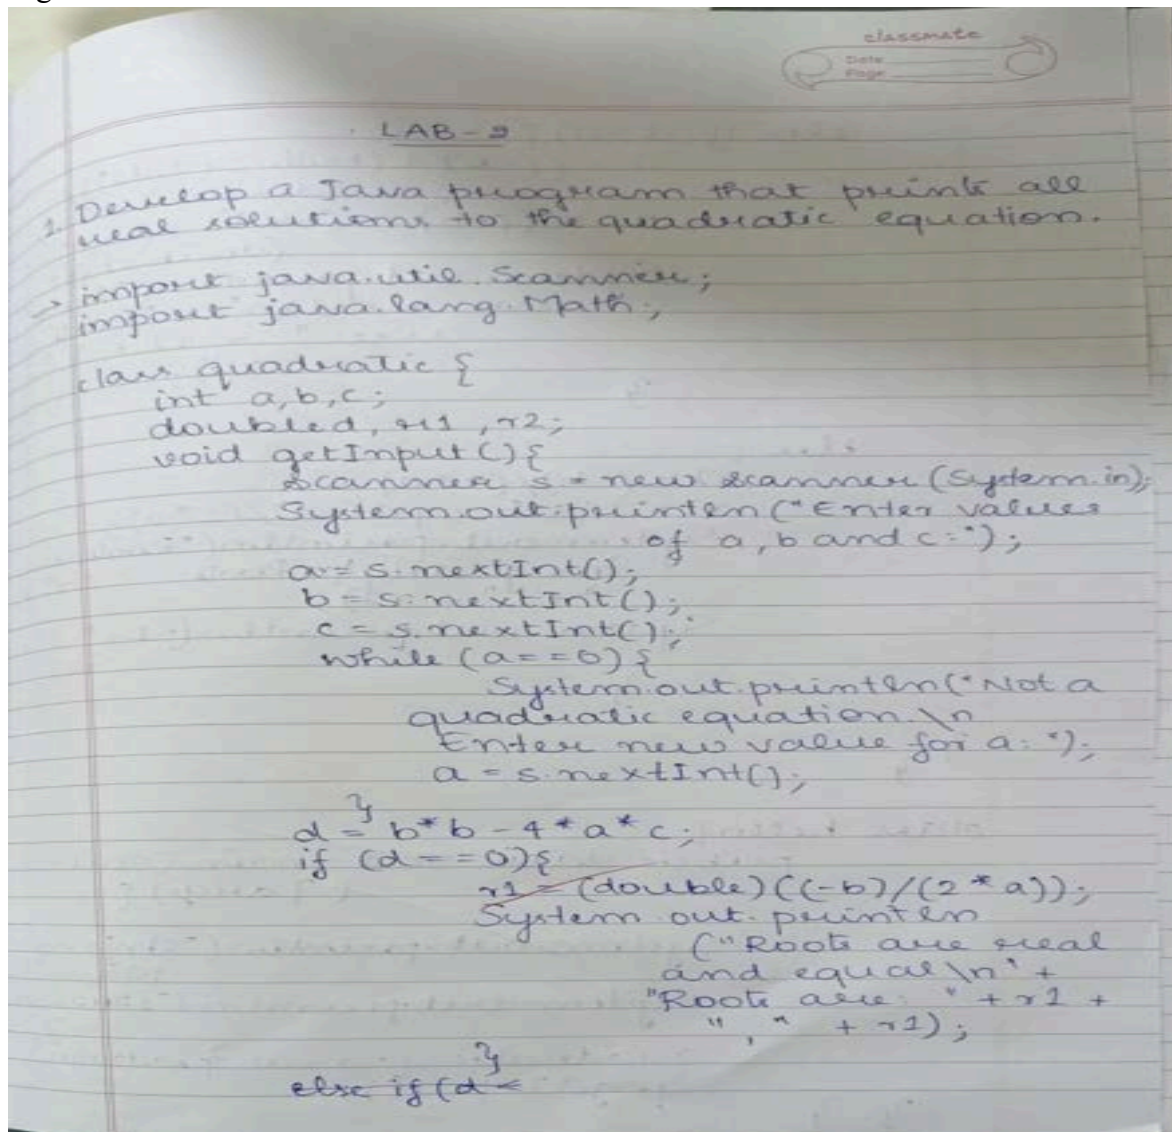 classmate
Date
Page
LAB-9
1. Develop a Java program that prints all
real solutions to the quadratic equation.
→ import java.util.Scanner;
import java.lang.Math;
class quadratic {
int a, b, c;
double d, r1, r2;
void getInput() {
Scanner s = new Scanner(System.in);
System.out.println("Enter values
of a, b and c:");
a = s.nextInt();
b = s.nextInt();
c = s.nextInt();
while (a==0) {
System.out.println("Not a
quadratic equation.\n
Enter new value for a:");
a = s.nextInt();
}
d = b*b - 4*a*c;
if (d==0) {
r1 = (double)((-b)/(2*a));
System.out.println
("Roots are real
and equal\n" +
"Roots are: " + r1 +
" , " + r1);
}
else if (d <